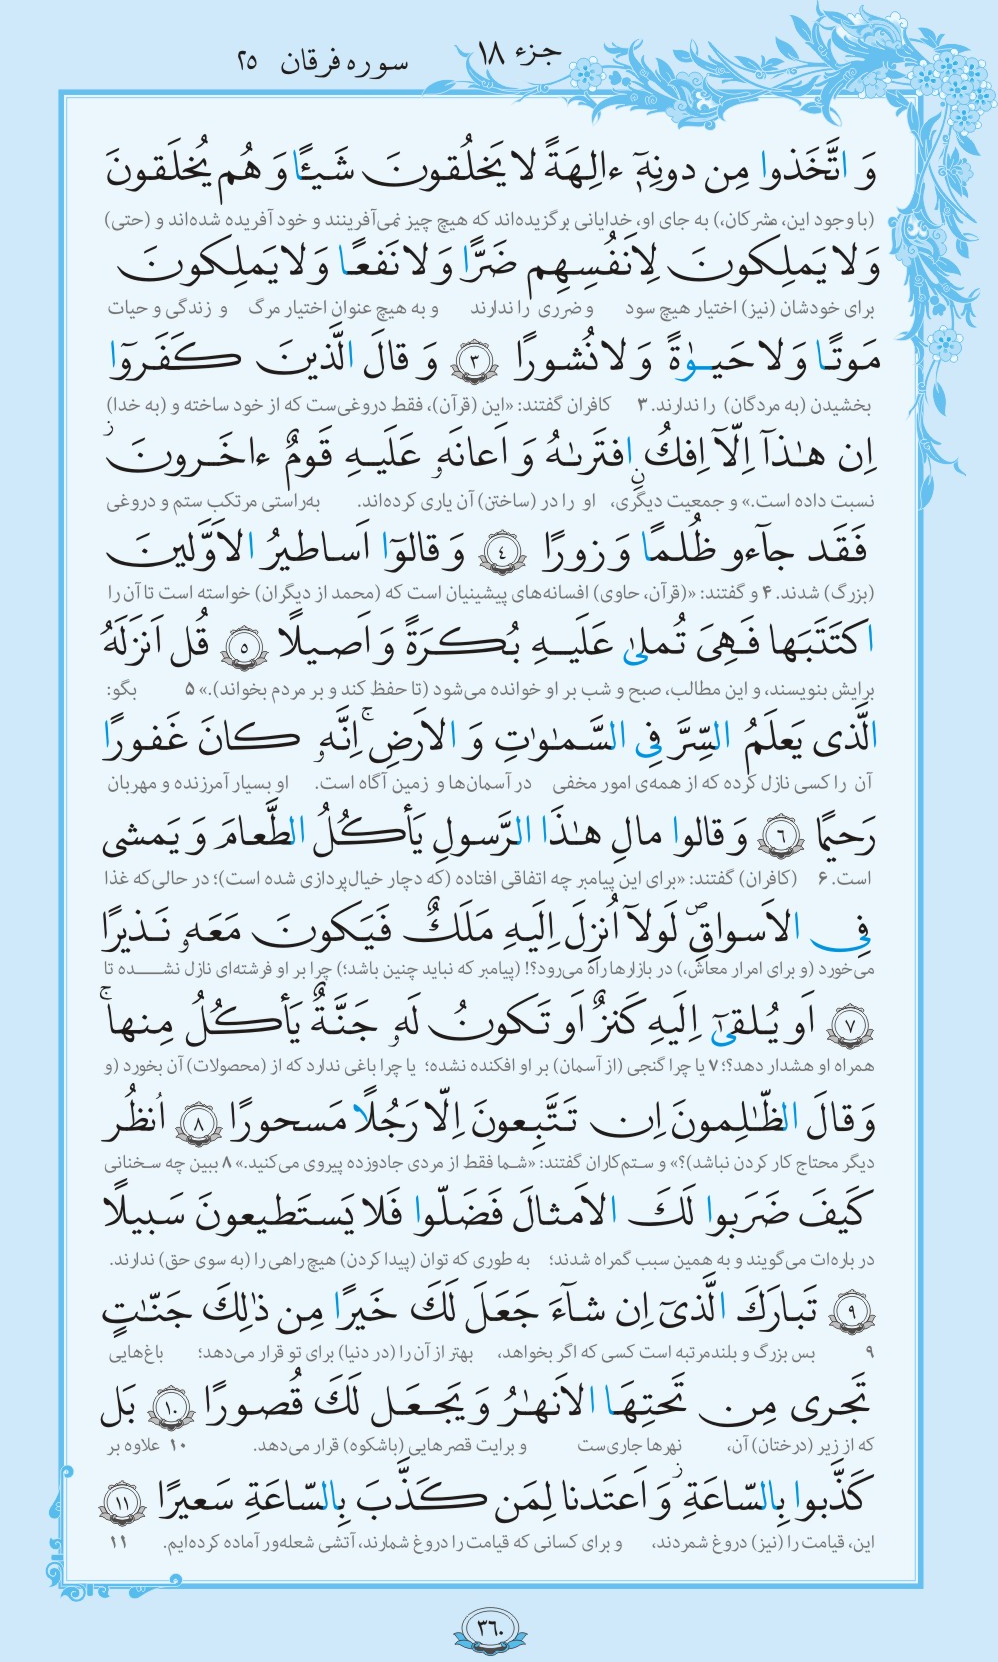 جزء ۱۸
سوره فرقان ۲۵
وَ اتَّخَذوا مِن دونِهٖٓ ءالِهَةً لا يَخلُقونَ شَيـًٔا وَ هُم يُخلَقونَ
(با وجود این، مشرکان،) به جای او، خدایانی برگزیده‌اند که هیچ چیز نمی‌آفرینند و خود آفریده شده‌اند و (حتی)
وَ لا يَملِكونَ لِاَنفُسِهِم ضَرًّا وَ لا نَفعًا وَ لا يَملِكونَ
برای خودشان (نیز) اختیار هیچ سود و ضرری را ندارند و به هیچ عنوان اختیار مرگ و زندگی و حیات
مَوتًا وَ لا حَيوٰةً وَ لا نُشورًا ﴿٣﴾ وَ قالَ الَّذينَ كَفَروٓا
بخشیدن (به مردگان) را ندارند. ۳ کافران گفتند: «این (قرآن)، فقط دروغی‌ست که از خود ساخته و (به خدا)
اِن هـٰذآ اِلّآ اِفكٌ ِۨافتَرىٰهُ وَ اَعانَهٗ عَلَيهِ قَومٌ ءاخَرونَ ۛز
نسبت داده است.» و جمعیت دیگری، او را در (ساختن) آن یاری کرده‌اند. به‌راستی مرتکب ستم و دروغی
فَقَد جآءو ظُلمًا وَ زورًا ﴿٤﴾ وَ قالوٓا اَساطيرُ الاَوَّلينَ
(بزرگ) شدند. ۴ و گفتند: «(قرآن، حاوی) افسانه‌های پیشینیان است که (محمد از دیگران) خواسته است تا آن را
اكتَتَبَها فَهِىَ تُملىٰ عَلَيهِ بُكرَةً وَ اَصيلًا ﴿٥﴾ قُل اَنزَلَهُ
برایش بنویسند، و این مطالب، صبح و شب بر او خوانده می‌شود (تا حفظ کند و بر مردم بخواند).» ۵ بگو:
الَّذى يَعلَمُ السِّرَّ فِى السَّمـٰوٰتِ وَ الاَرضِ ۚ اِنَّهٗ كانَ غَفورًا
آن را کسی نازل کرده که از همه‌ی امور مخفی در آسمان‌ها و زمین آگاه است. او بسیار آمرزنده و مهربان
رَحيمًا ﴿٦﴾ وَ قالوا مالِ هـٰذَا الرَّسولِ يَأكُلُ الطَّعامَ وَ يَمشى
است. ۶ (کافران) گفتند: «برای این پیامبر چه اتفاقی افتاده (که دچار خیال‌پردازی شده است)؛ در حالی‌که غذا
فِى الاَسواقِ ۙص لَولآ اُنزِلَ اِلَيهِ مَلَكٌ فَيَكونَ مَعَهٗ نَذيرًا
می‌خورد (و برای امرار معاش،) در بازارها راه می‌رود؟! (پیامبر که نباید چنین باشد؛) چرا بر او فرشته‌ای نازل نشده تا
﴿٧﴾ اَو يُلقىٰٓ اِلَيهِ كَنزٌ اَو تَكونُ لَهٗ جَنَّةٌ يَأكُلُ مِنها ۚ
همراه او هشدار دهد؟؛ ۷ یا چرا گنجی (از آسمان) بر او افکنده نشده؛ یا چرا باغی ندارد که از (محصولات) آن بخورد (و
وَ قالَ الظّـٰلِمونَ اِن تَتَّبِعونَ اِلّا رَجُلًا مَسحورًا ﴿٨﴾ اُنظُر
دیگر محتاج کار کردن نباشد)؟» و ستم‌کاران گفتند: «شما فقط از مردی جادوزده پیروی می‌کنید.» ۸ ببین چه سخنانی
كَيفَ ضَرَبوا لَكَ الاَمثالَ فَضَلّوا فَلا يَستَطيعونَ سَبيلًا
در باره‌ات می‌گویند و به همین سبب گمراه شدند؛ به طوری که توان (پیدا کردن) هیچ راهی را (به سوی حق) ندارند.
﴿٩﴾ تَبارَكَ الَّذىٓ اِن شآءَ جَعَلَ لَكَ خَيرًا مِن ذٰلِكَ جَنّـٰتٍ
۹ بس بزرگ و بلندمرتبه است کسی که اگر بخواهد، بهتر از آن را (در دنیا) برای تو قرار می‌دهد؛ باغ‌هایی
تَجرى مِن تَحتِهَا الاَنهـٰرُ وَ يَجعَل لَكَ قُصورًا ﴿١٠﴾ بَل
که از زیر (درختان) آن، نهرها جاری‌ست و برایت قصرهایی (باشکوه) قرار می‌دهد. ۱۰ علاوه بر
كَذَّبوا بِالسّاعَةِ ۖز وَ اَعتَدنا لِمَن كَذَّبَ بِالسّاعَةِ سَعيرًا ﴿١١﴾
این، قیامت را (نیز) دروغ شمردند، و برای کسانی که قیامت را دروغ شمارند، آتشی شعله‌ور آماده کرده‌ایم. ۱۱
۳۶۰